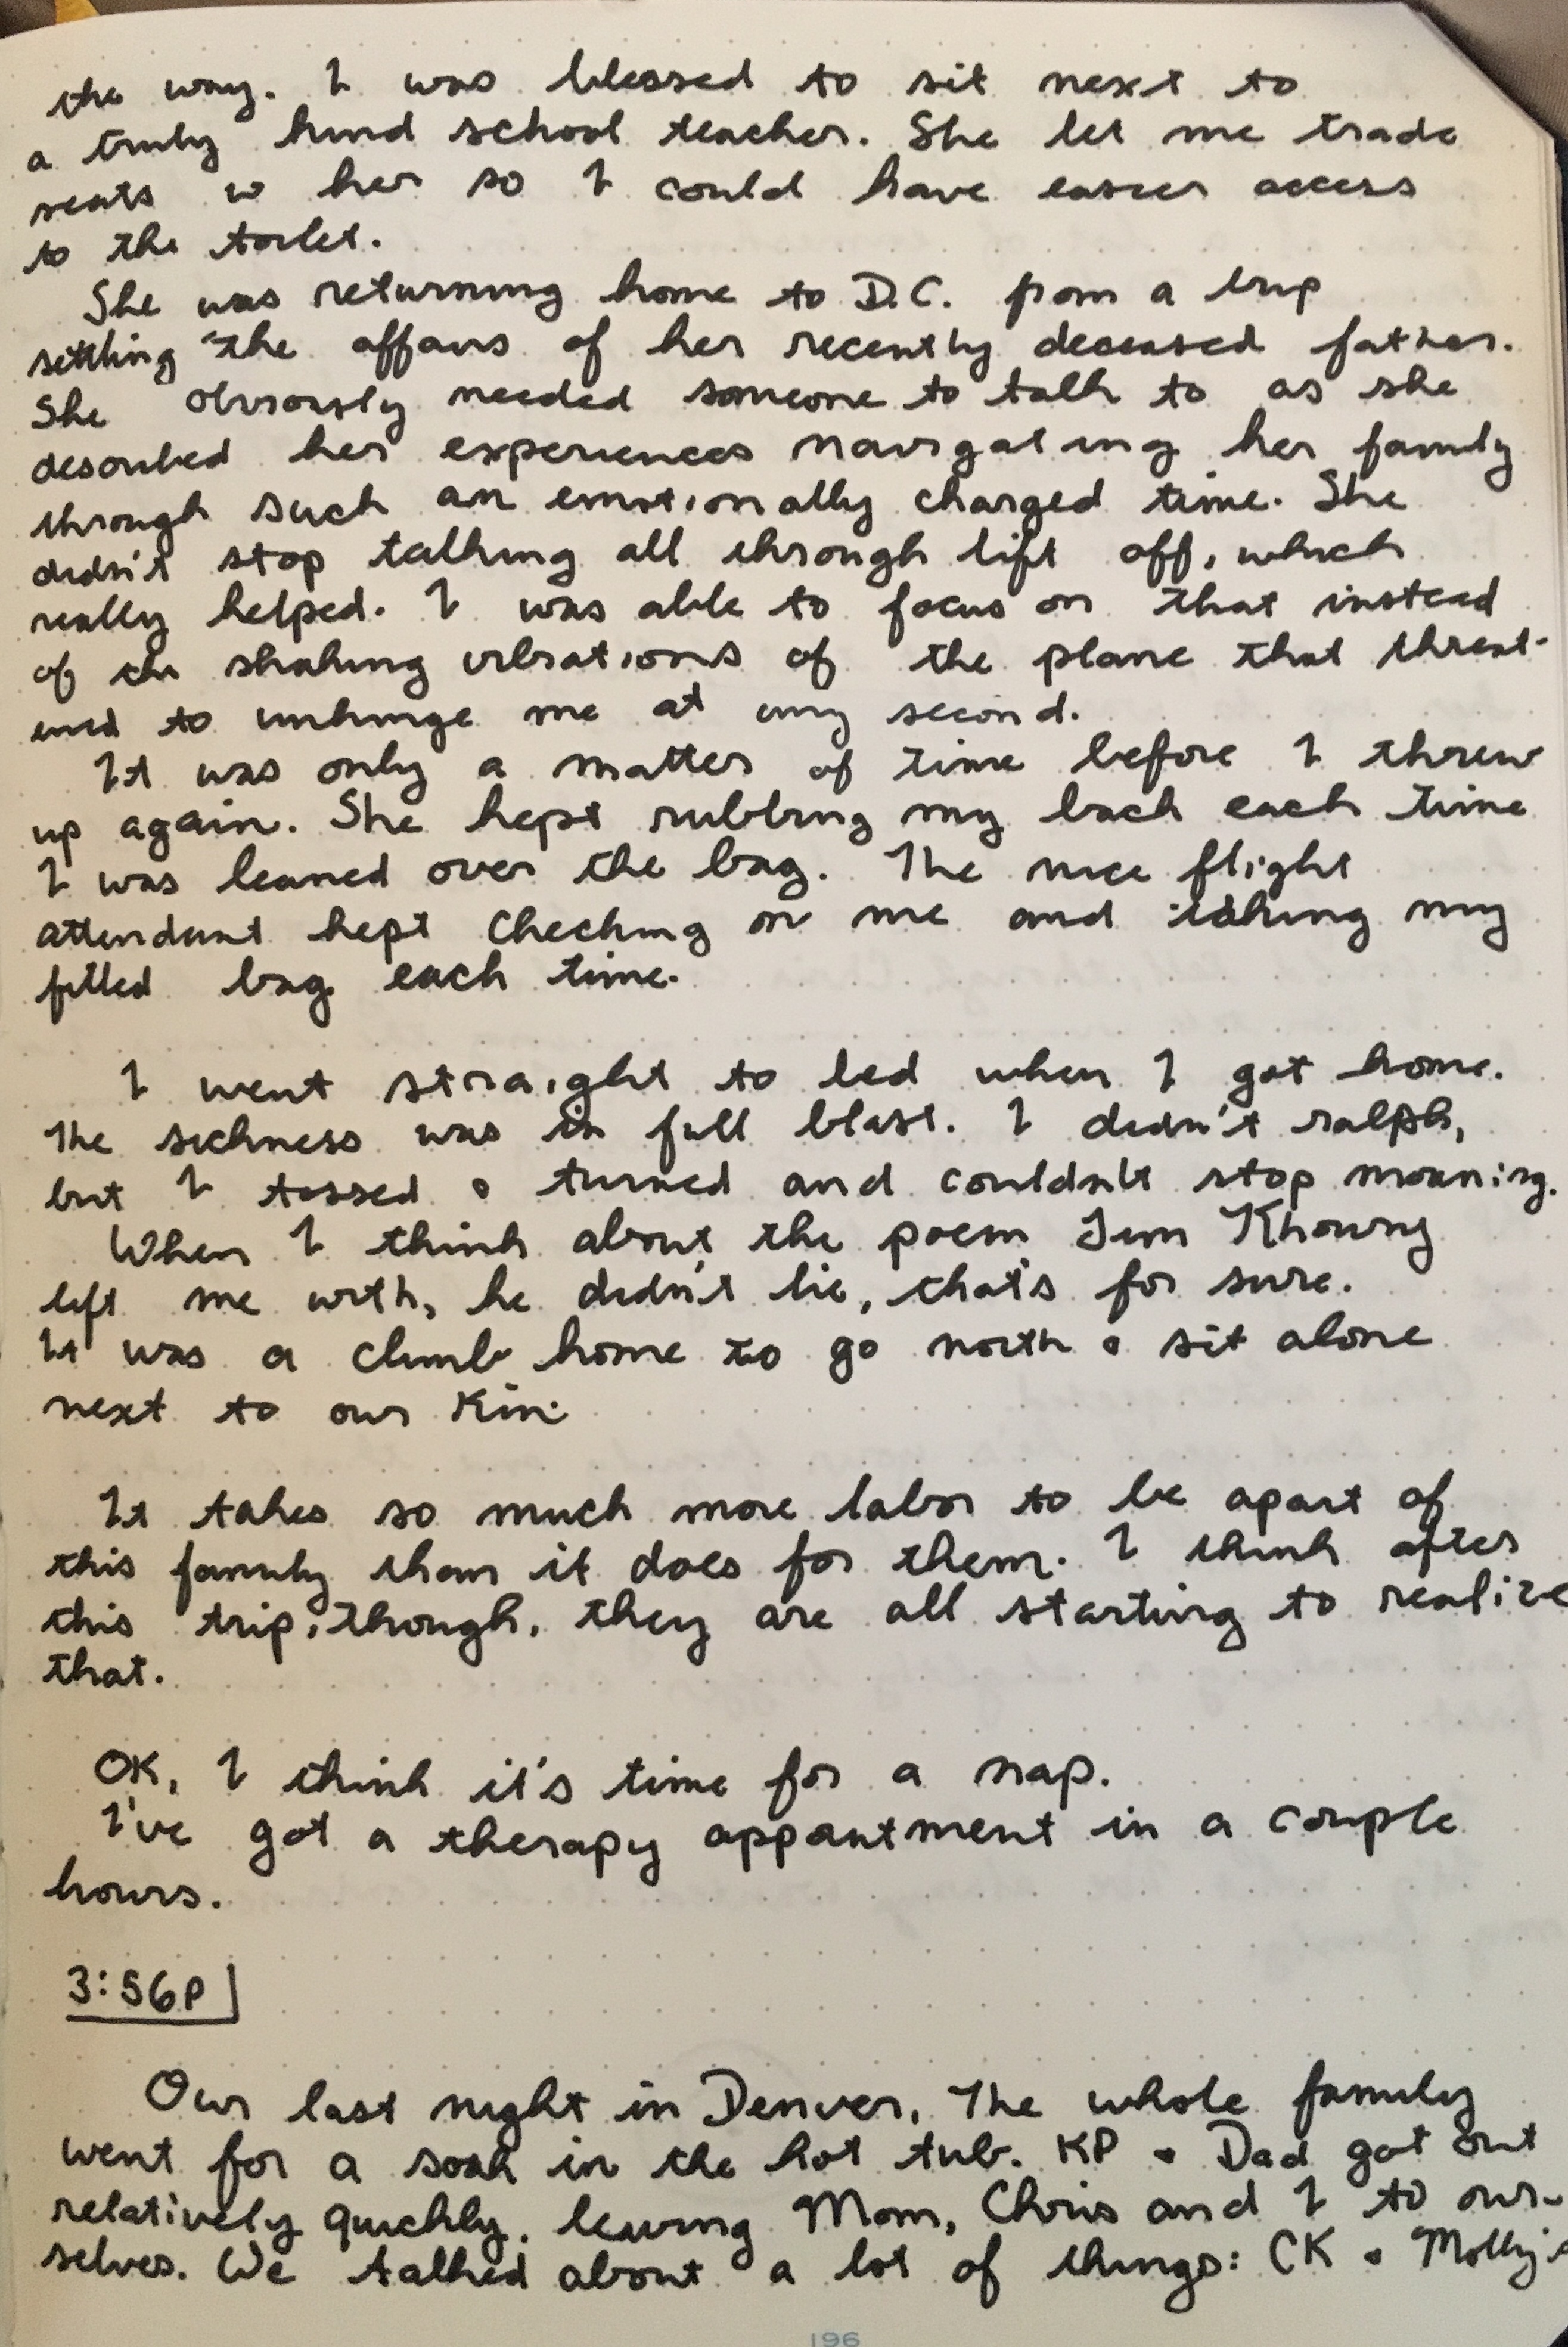 the way. I was blessed to sit next to
a truly kind school teacher. She let me trade
seats w her so I could have easier access
to the toilet.
She was returning home to D.C. from a trip
settling the affairs of her recently deceased father.
She obviously needed someone to talk to as she
described her experiences navigating her family
through such an emotionally charged time. She
didn't stop talking all through lift off, which
really helped. I was able to focus on that instead
of the shaking vibrations of the plane that threat-
ened to unhinge me at any second.
It was only a matter of time before I threw
up again. She kept rubbing my back each time
I was leaned over the bag. The nice flight
attendant kept checking on me and taking my
filled bag each time.
I went straight to bed when I got home.
The sickness was in full blast. I didn't ralph,
but I tossed & turned and couldn't stop moaning.
When I think about the poem Jim Khowry
left me with, he didn't lie, that's for sure.
It was a climb home to go north & sit alone
next to our Kin.
It takes so much more labor to be apart of
this family than it does for them. I think after
this trip, though, they are all starting to realize
that.
OK, I think it's time for a nap.
I've got a therapy appointment in a couple
hours.
3:56P
Our last night in Denver, The whole family
went for a soak in the hot tub. KP & Dad got out
relatively quickly, leaving Mom, Chris and I to our-
selves. We talked about a lot of things: CK & Molly's
196